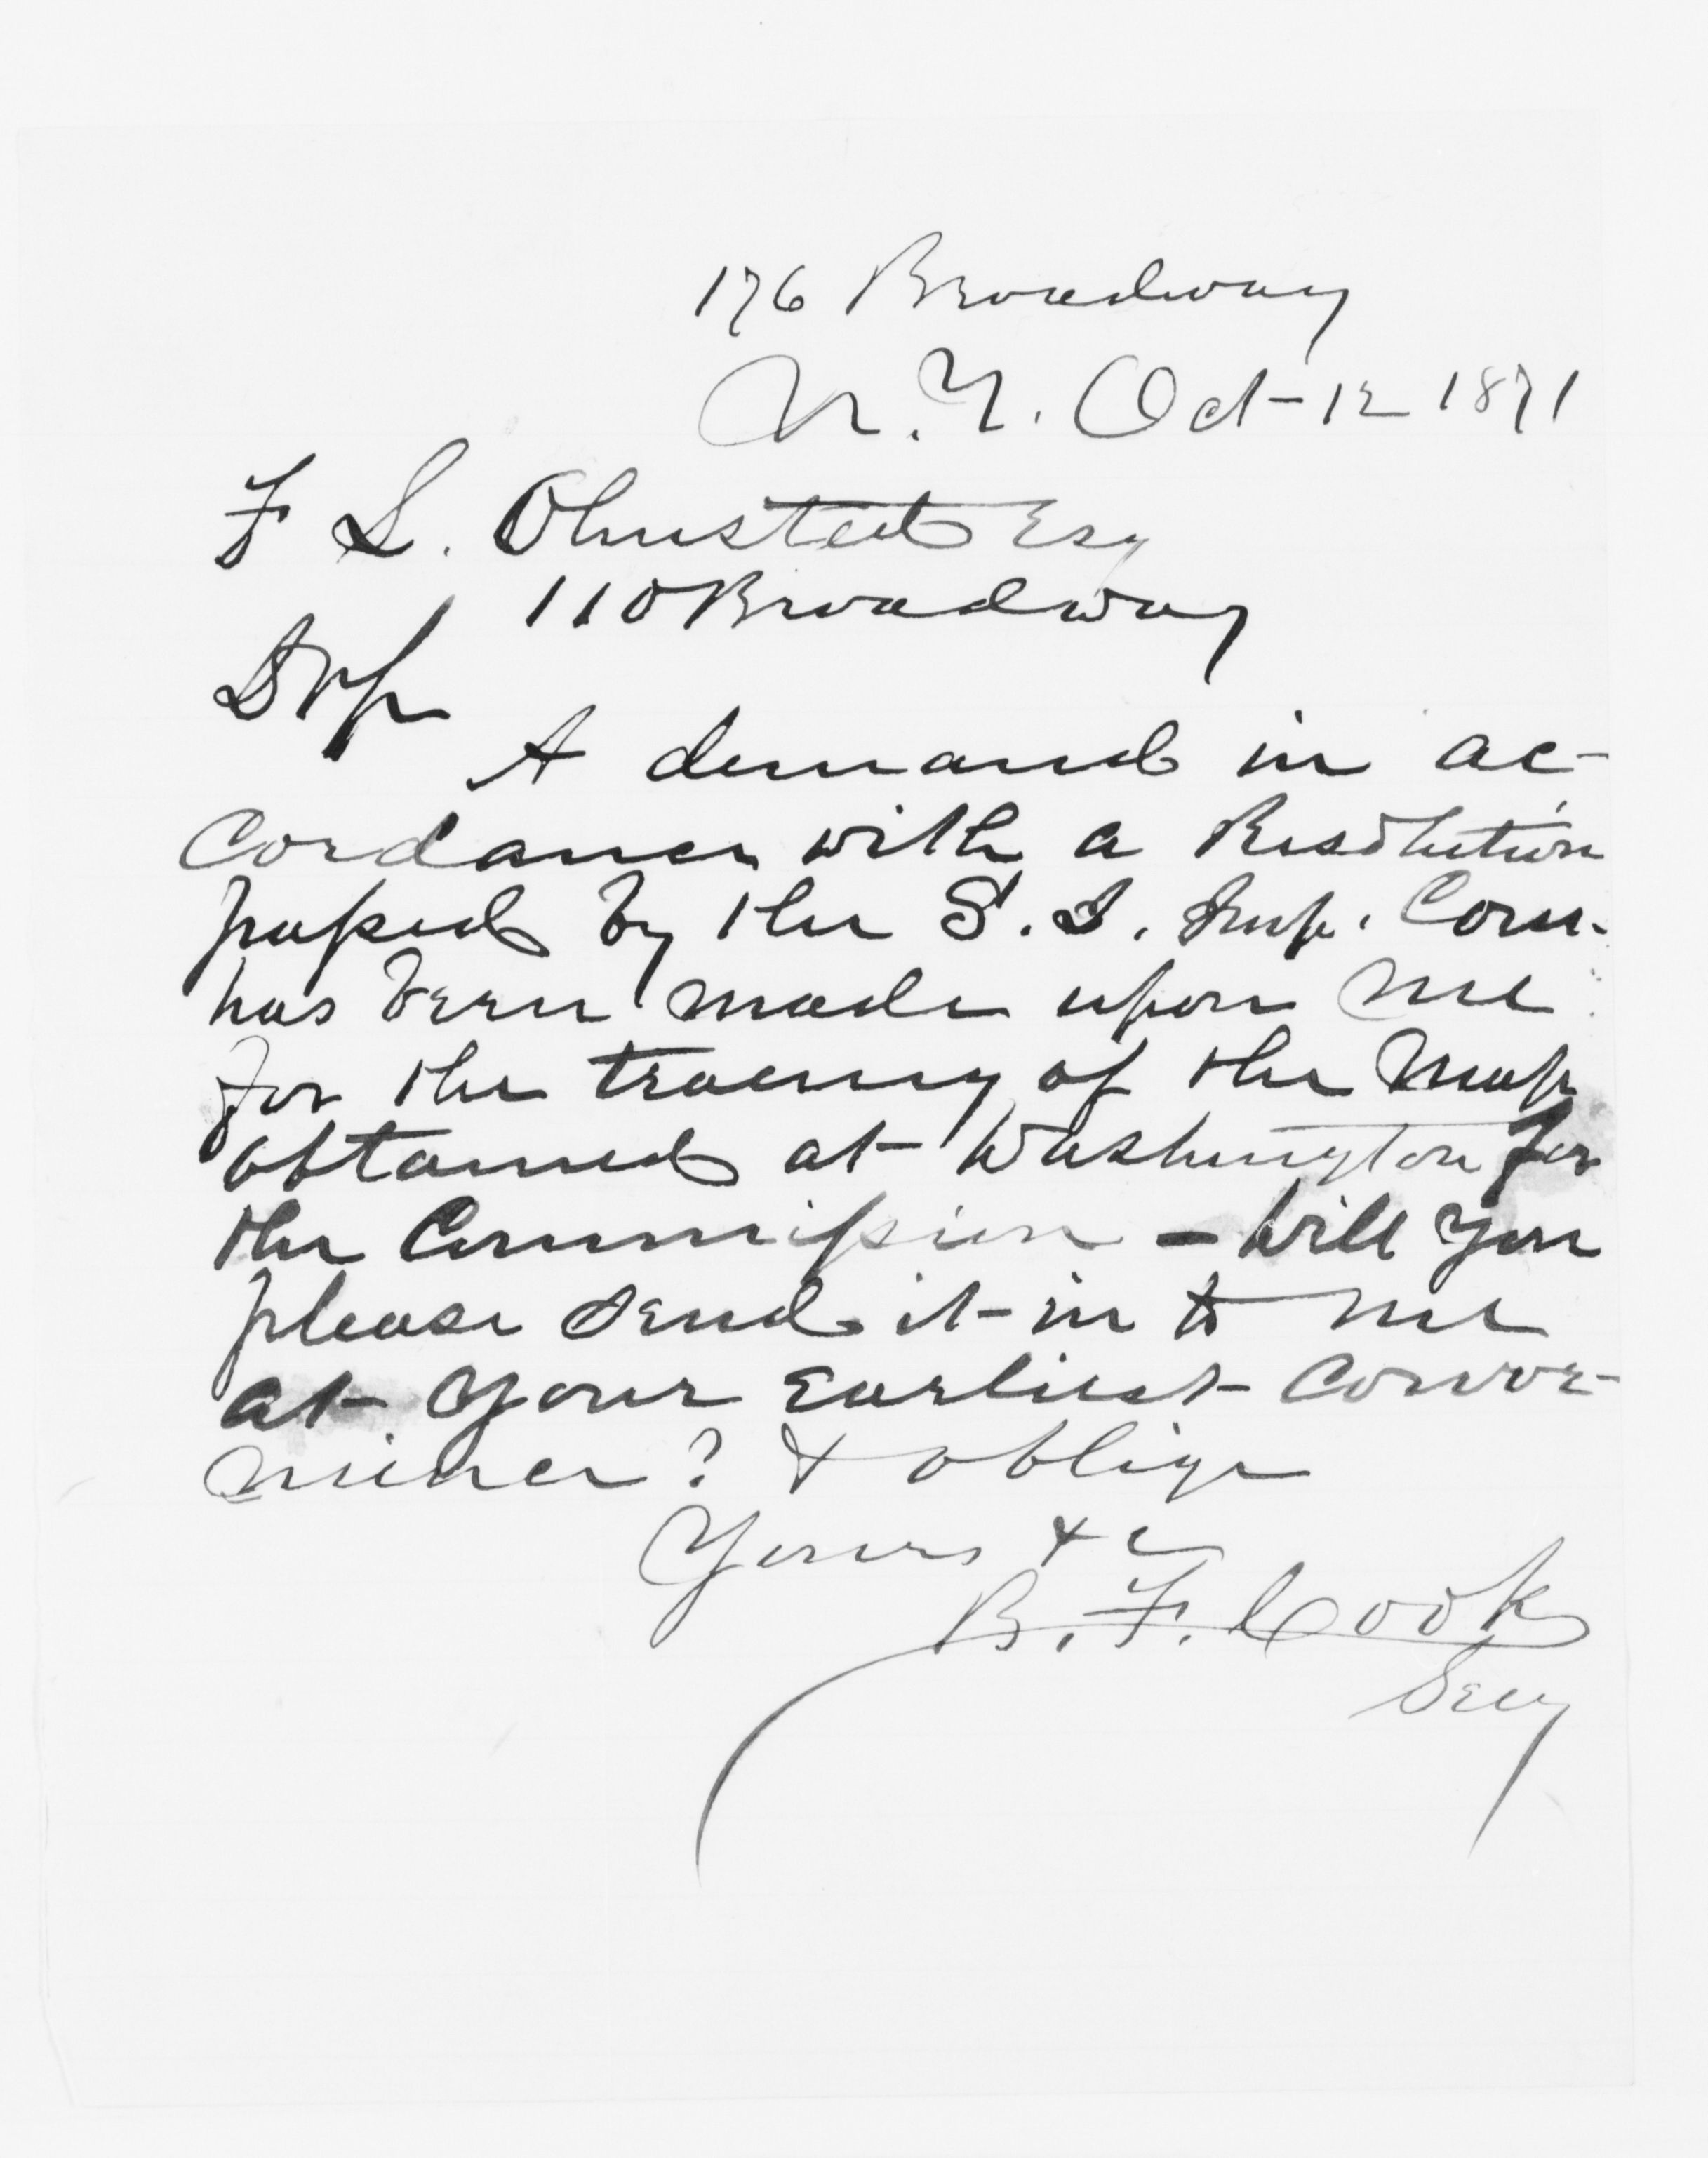 176 Broadway
N.Y. Oct-12 1871
F L. Olmsted Esq
110 Broadway
Dr Sir
A demand in ac-
cordance with a Resolution
passed by the S. I. Imp. Com.
has been made upon me
for the tracing of the Map
obtained at Washington for
the Commission - Will you
please send it in to me
at your earliest conve-
nience? & oblige
Yours &c
B. F. Cook
Secy